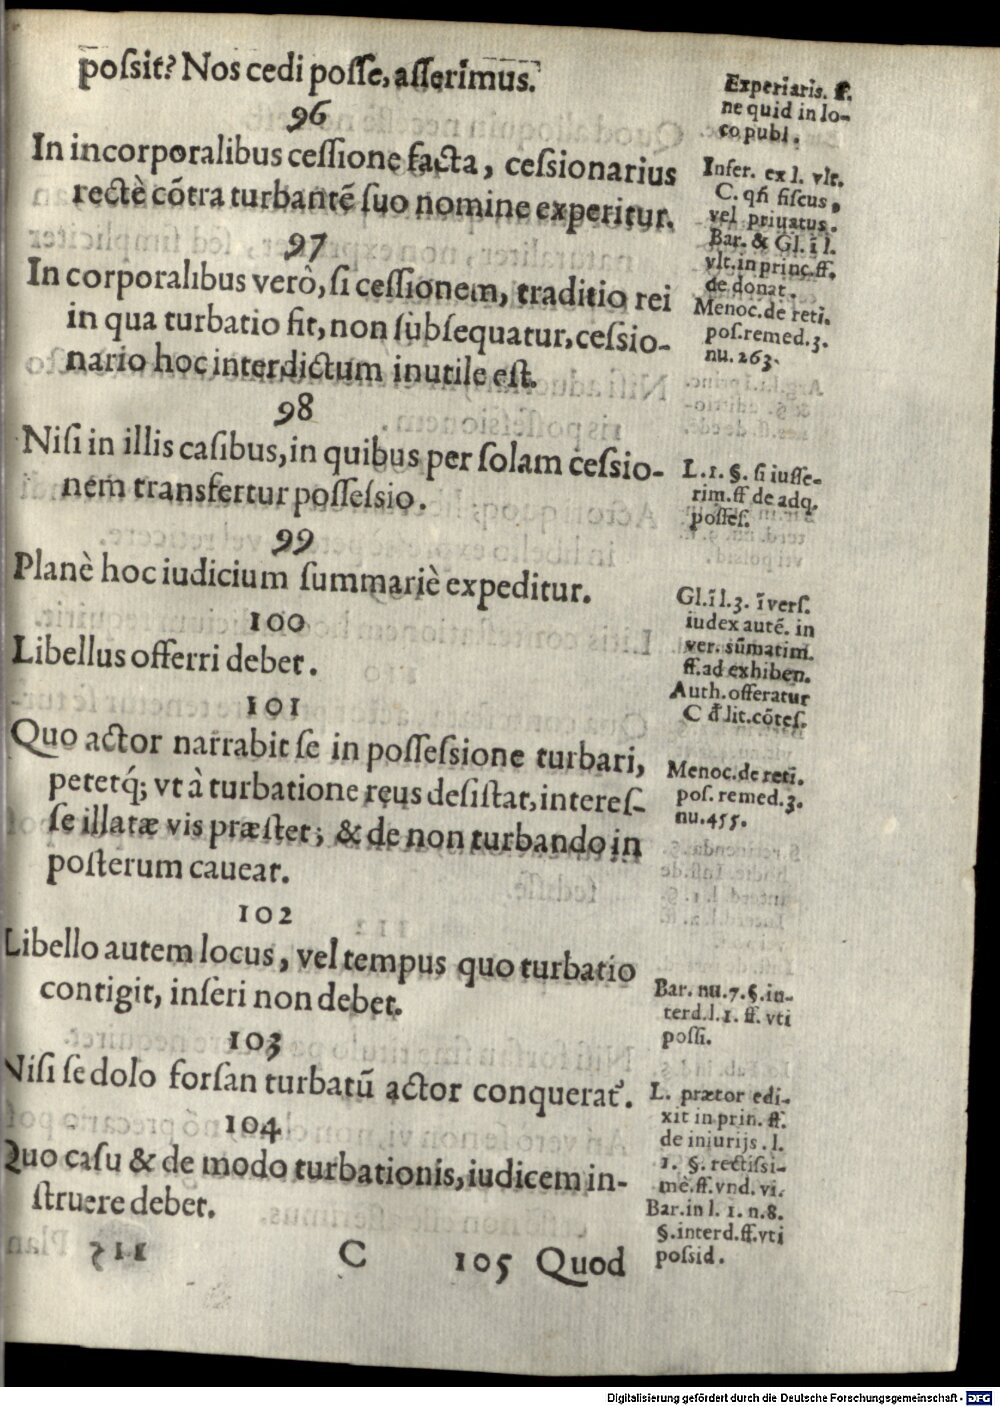 poſsit? Nos cedi poſſe, aſſerimus.
96
In incorporalibus ceſſione facta, ceſsionarius
rectè cõtra turbantẽ ſuo nomine experitur.
97
In corporalibus verò, ſi ceſſionem, traditio rei
in qua turbatio fit, non ſubſequatur, ceſsio-
nario hoc interdictum inutile eſt.
98
Niſi in illis caſibus, in quibus per ſolam ceſsio-
nem transfertur poſſeſsio.
99
Planè hoc iudicium ſummariè expeditur.
100
Libellus offerri debet.
101
Quo actor narrabit ſe in poſſeſsione turbari,
petetq́; vt à turbatione reus deſiſtat, intereſ-
ſe illatæ vis præſtet; & de non turbando in
poſterum caueat.
102
Libello autem locus, vel tempus quo turbatio
contigit, inſeri non debet.
103
Niſi ſe dolo forſan turbatũ actor conquerat᷑.
104
Quo caſu & de modo turbationis, iudicem in-
ſtruere debet.
C 105 Quod
Experiaris. ff.
ne quid in lo-
co publ.
Infer. ex l. vlt.
C. qñ fiſcus,
vel priuatus.
Bar. & Gl. ĩ l.
vlt. in princ. ff.
de donat.
Menoc. de reti.
poſ. remed. 3.
nu. 263.
L. 1. §. ſi iuſſe-
rim. ff de adq.
poſſeſ.
Gl. ĩ l. 3. ĩ verſ.
iudex autẽ. in
ver. sũmatim.
ff. ad exhiben.
Auth. offeratur
C đ lit. cõteſ.
Menoc. de reti.
poſ. remed. 3.
nu. 455.
Bar. nu. 7. §. in-
terd. l. 1. ff. vti
poſſi.
L. prætor edi-
xit in prin. ff.
de iniurijs. l.
1. §. rectiſsi-
mè. ff. vnd. vi.
Bar. in l. 1. n. 8.
§. interd. ff. vti
poſsid.
Digitalisierung gefördert durch die Deutsche Forschungsgemeinschaft - DFG